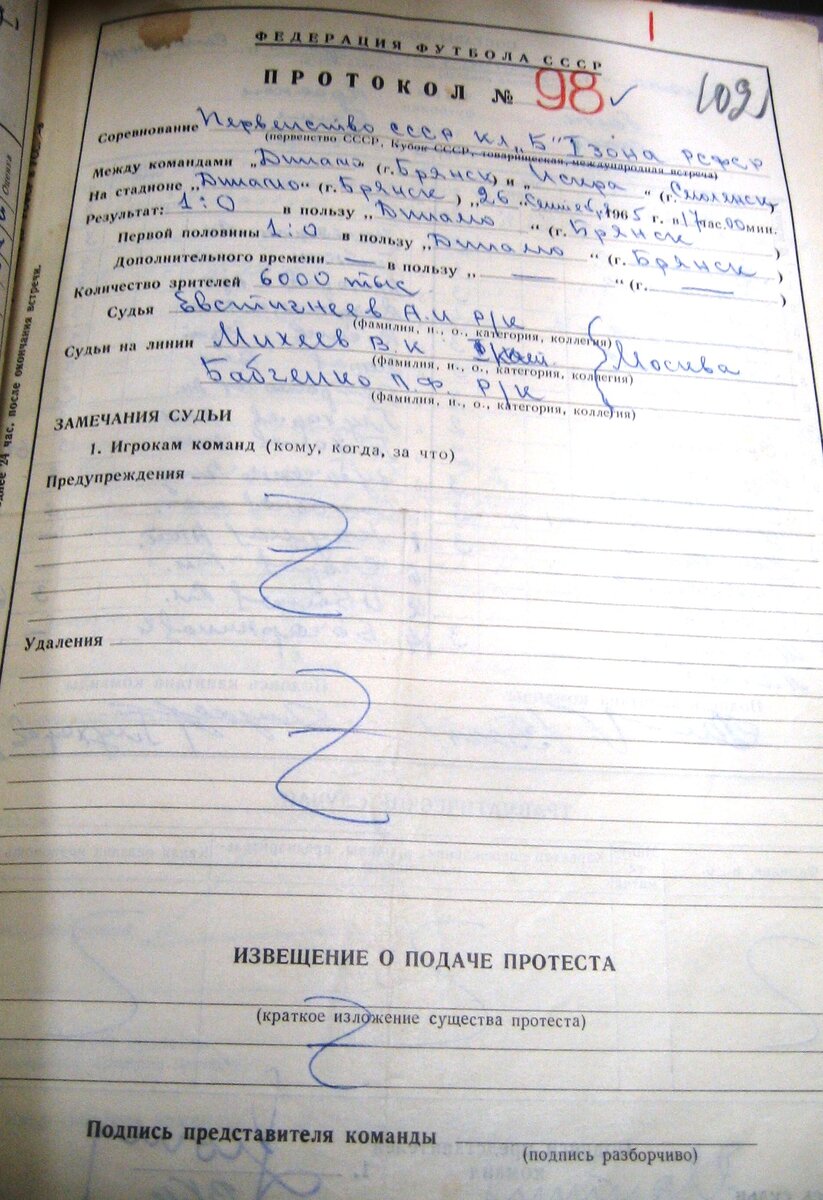 ФЕДЕРАЦИЯ ФУТБОЛА СССР
ПРОТОКОЛ № 98 109
Соревнование Первенство СССР кл. „Б" I зона РСФСР
(первенство СССР, Кубок СССР, товарищеская, международная встреча)
Между командами „Динамо" (г. Брянск) и „Искра" (г. Смоленск)
На стадионе „Динамо" (г. Брянск) „26" сентября 1965 г. в 17 час. 00 мин.
Результат: 1:0 в пользу „Динамо" (г. Брянск)
Первой половины 1:0 в пользу „Динамо" (г. Брянск)
Дополнительного времени — в пользу „ — " (г. — )
Количество зрителей 6000 тыс
Судья Евстигнеев А.И Р/К
(фамилия, и., о., категория, коллегия)
Судьи на линии Михеев В.К Москва
(фамилия, и., о., категория, коллегия)
Бабченко П.Ф. Р/К
(фамилия, и., о., категория, коллегия)
ЗАМЕЧАНИЯ СУДЬИ
1. Игрокам команд (кому, когда, за что)
Предупреждения
Удаления
ИЗВЕЩЕНИЕ О ПОДАЧЕ ПРОТЕСТА
(краткое изложение существа протеста)
Подпись представителя команды
(подпись разборчиво)
24 час. после окончания встречи.